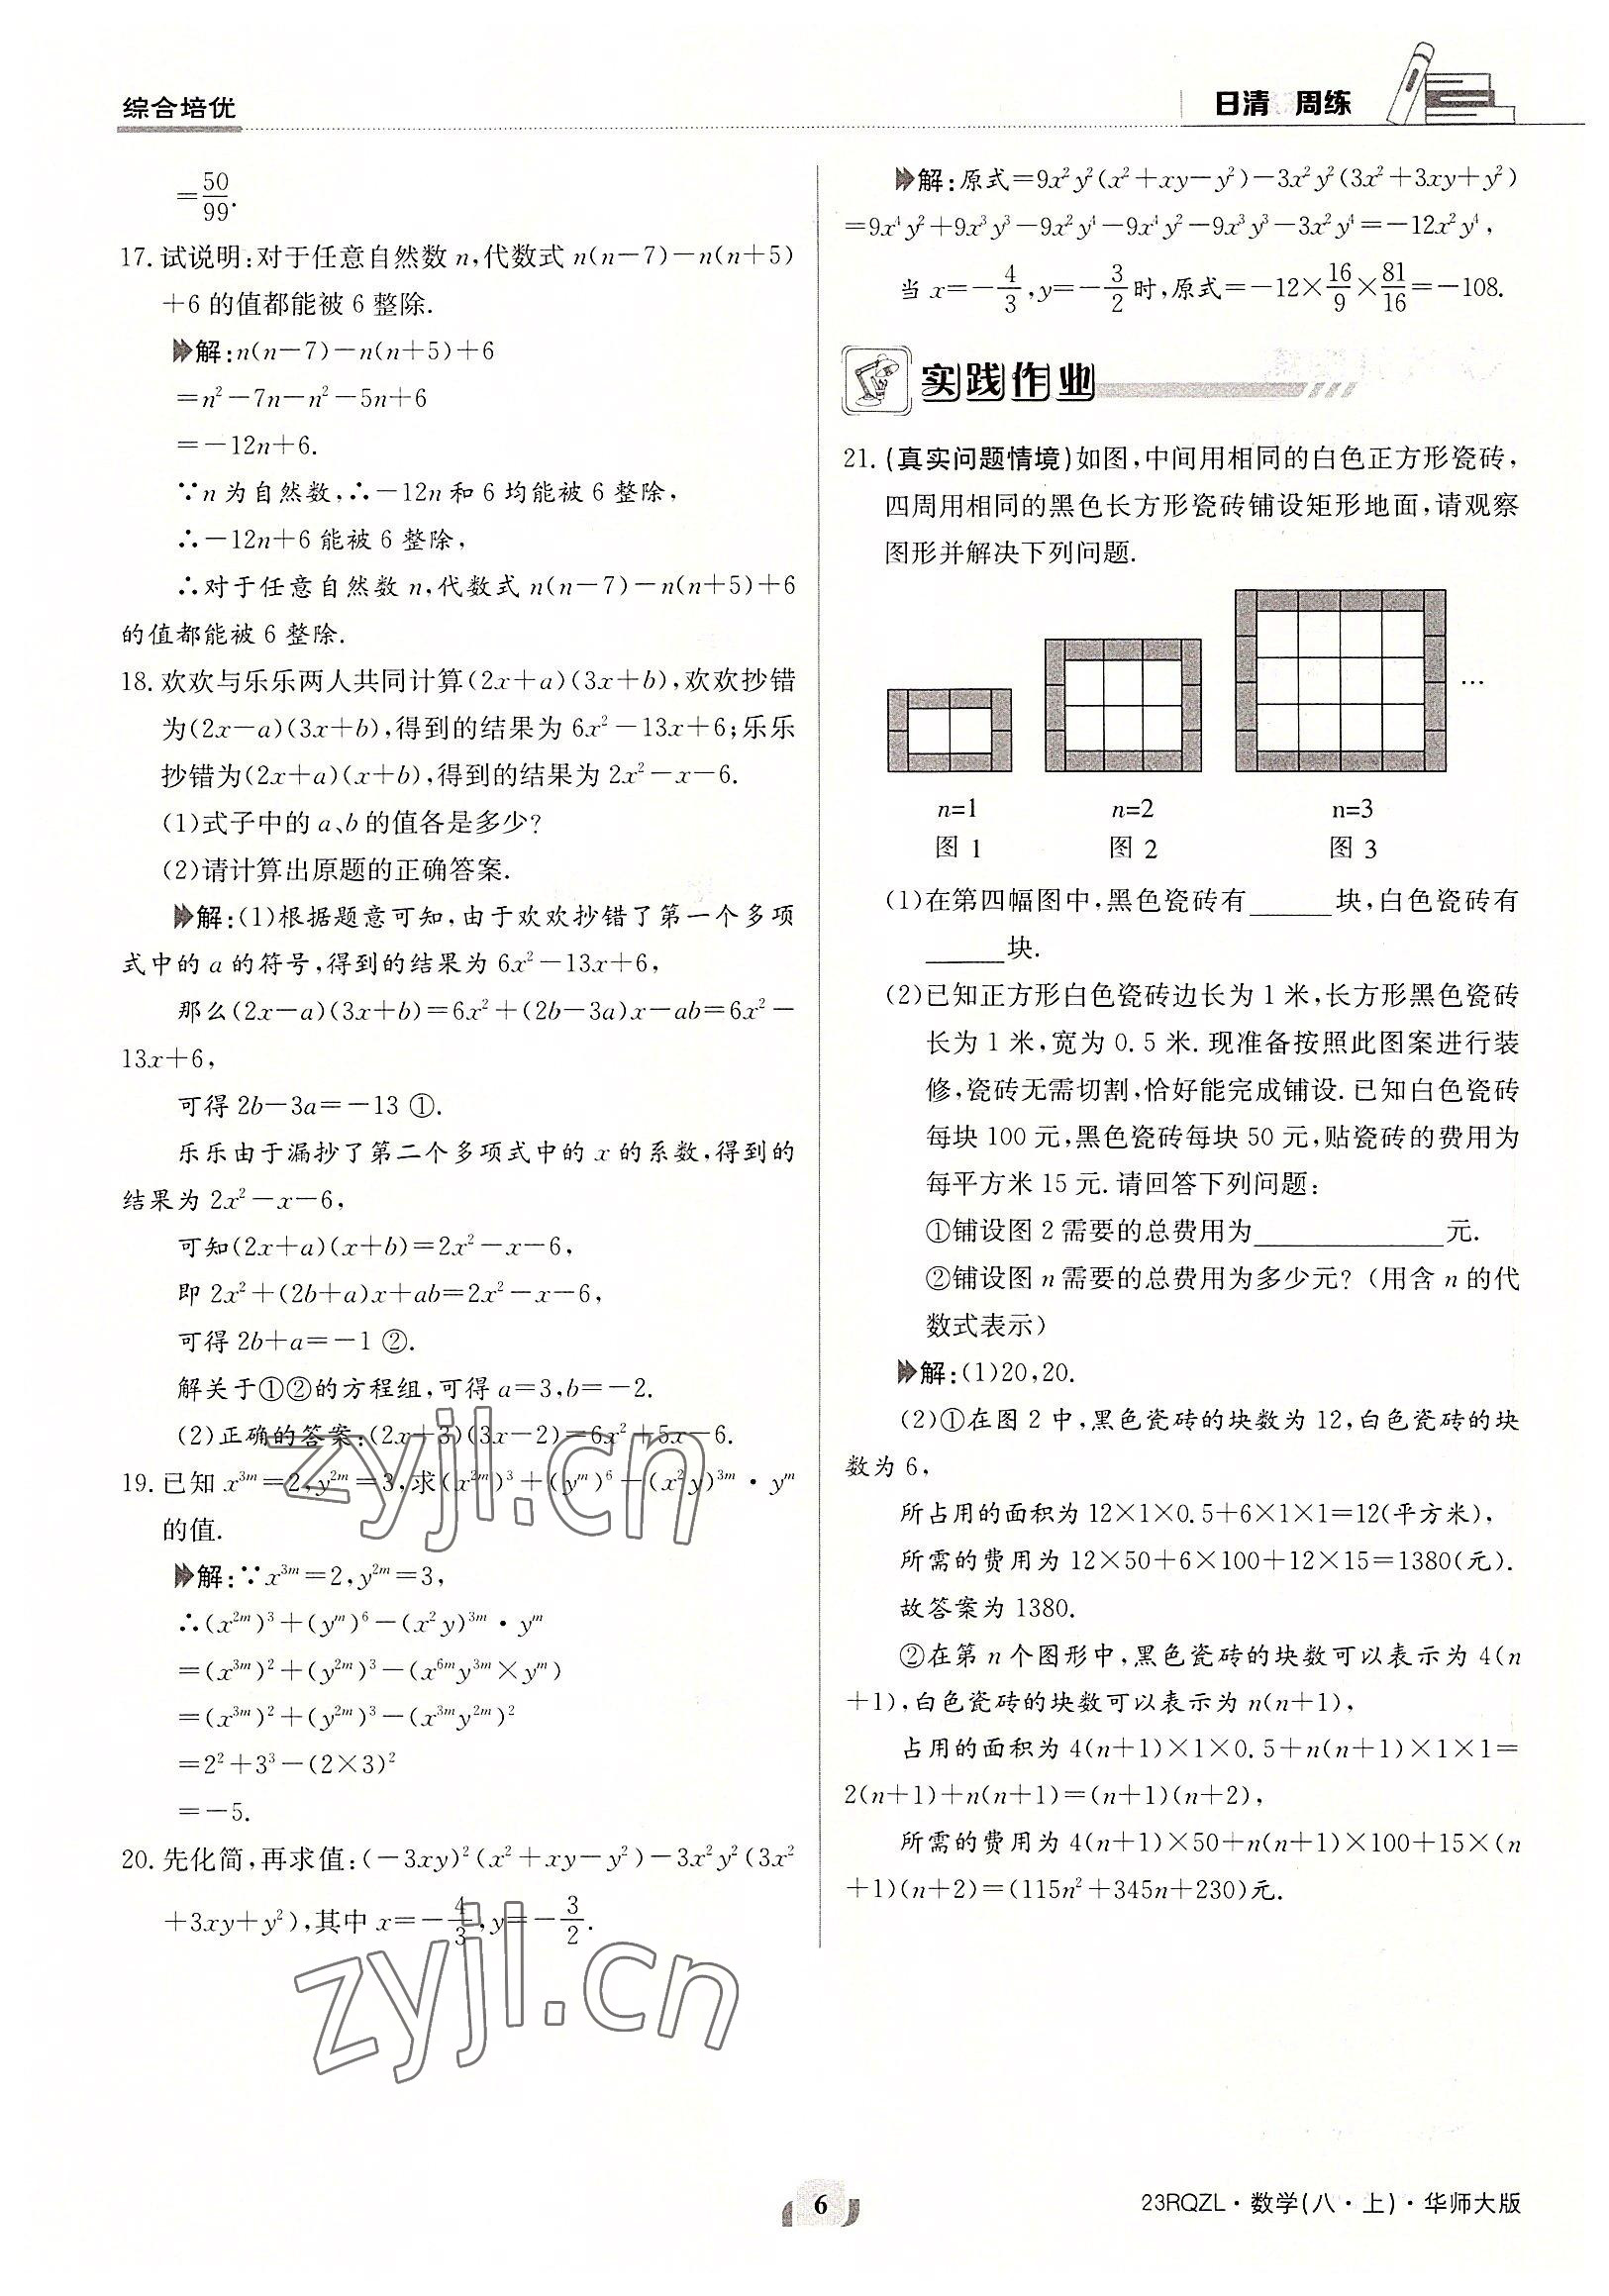 综合培优
日清 周练
=50/99.
17. 试说明:对于任意自然数 n,代数式 n(n-7)-n(n+5)
+6 的值都能被 6 整除.
解:n(n-7)-n(n+5)+6
=n²-7n-n²-5n+6
=-12n+6.
∵n 为自然数,∴-12n 和 6 均能被 6 整除,
∴-12n+6 能被 6 整除,
∴对于任意自然数 n,代数式 n(n-7)-n(n+5)+6
的值都能被 6 整除.
18. 欢欢与乐乐两人共同计算(2x+a)(3x+b),欢欢抄错
为(2x-a)(3x+b),得到的结果为 6x²-13x+6;乐乐
抄错为(2x+a)(x+b),得到的结果为 2x²-x-6.
(1)式子中的 a、b 的值各是多少?
(2)请计算出原题的正确答案.
解:(1)根据题意可知,由于欢欢抄错了第一个多项
式中的 a 的符号,得到的结果为 6x²-13x+6,
那么(2x-a)(3x+b)=6x²+(2b-3a)x-ab=6x²-
13x+6,
可得 2b-3a=-13 ①.
乐乐由于漏抄了第二个多项式中的 x 的系数,得到的
结果为 2x²-x-6,
可知(2x+a)(x+b)=2x²-x-6,
即 2x²+(2b+a)x+ab=2x²-x-6,
可得 2b+a=-1 ②.
解关于①②的方程组,可得 a=3,b=-2.
(2)正确的答案:(2x+3)(3x-2)=6x²+5x-6.
19. 已知 x³ᵐ=2,y²ᵐ=3,求(x²ᵐ)³+(yᵐ)⁶-(x²y)³ᵐ·yᵐ
的值.
解:∵x³ᵐ=2,y²ᵐ=3,
∴(x²ᵐ)³+(yᵐ)⁶-(x²y)³ᵐ·yᵐ
=(x³ᵐ)²+(y²ᵐ)³-(x⁶ᵐy³ᵐ×yᵐ)
=(x³ᵐ)²+(y²ᵐ)³-(x³ᵐy²ᵐ)²
=2²+3³-(2×3)²
=-5.
20. 先化简,再求值:(-3xy)²(x²+xy-y²)-3x²y²(3x²
+3xy+y²),其中 x=-4/3,y=-3/2.
zyjl.cn
zyjl.cn
解:原式=9x²y²(x²+xy-y²)-3x²y²(3x²+3xy+y²)
=9x⁴y²+9x³y³-9x²y⁴-9x⁴y²-9x³y³-3x²y⁴=-12x²y⁴,
当 x=-4/3,y=-3/2时,原式=-12×16/9×81/16=-108.
实践作业
21. (真实问题情境)如图,中间用相同的白色正方形瓷砖,
四周用相同的黑色长方形瓷砖铺设矩形地面,请观察
图形并解决下列问题.
…
n=1 n=2 n=3
图 1 图 2 图 3
(1)在第四幅图中,黑色瓷砖有______块,白色瓷砖有
______块.
(2)已知正方形白色瓷砖边长为 1 米,长方形黑色瓷砖
长为 1 米,宽为 0.5 米. 现准备按照此图案进行装
修,瓷砖无需切割,恰好能完成铺设. 已知白色瓷砖
每块 100 元,黑色瓷砖每块 50 元,贴瓷砖的费用为
每平方米 15 元. 请回答下列问题:
①铺设图 2 需要的总费用为______________元.
②铺设图 n 需要的总费用为多少元?(用含 n 的代
数式表示)
解:(1)20,20.
(2)①在图 2 中,黑色瓷砖的块数为 12,白色瓷砖的块
数为 6,
所占用的面积为 12×1×0.5+6×1×1=12(平方米),
所需的费用为 12×50+6×100+12×15=1380(元).
故答案为 1380.
②在第 n 个图形中,黑色瓷砖的块数可以表示为 4(n
+1),白色瓷砖的块数可以表示为 n(n+1),
占用的面积为 4(n+1)×1×0.5+n(n+1)×1×1=
2(n+1)+n(n+1)=(n+1)(n+2),
所需的费用为 4(n+1)×50+n(n+1)×100+15×(n
+1)(n+2)=(115n²+345n+230)元.
6
23RQZL·数学(八·上)·华师大版